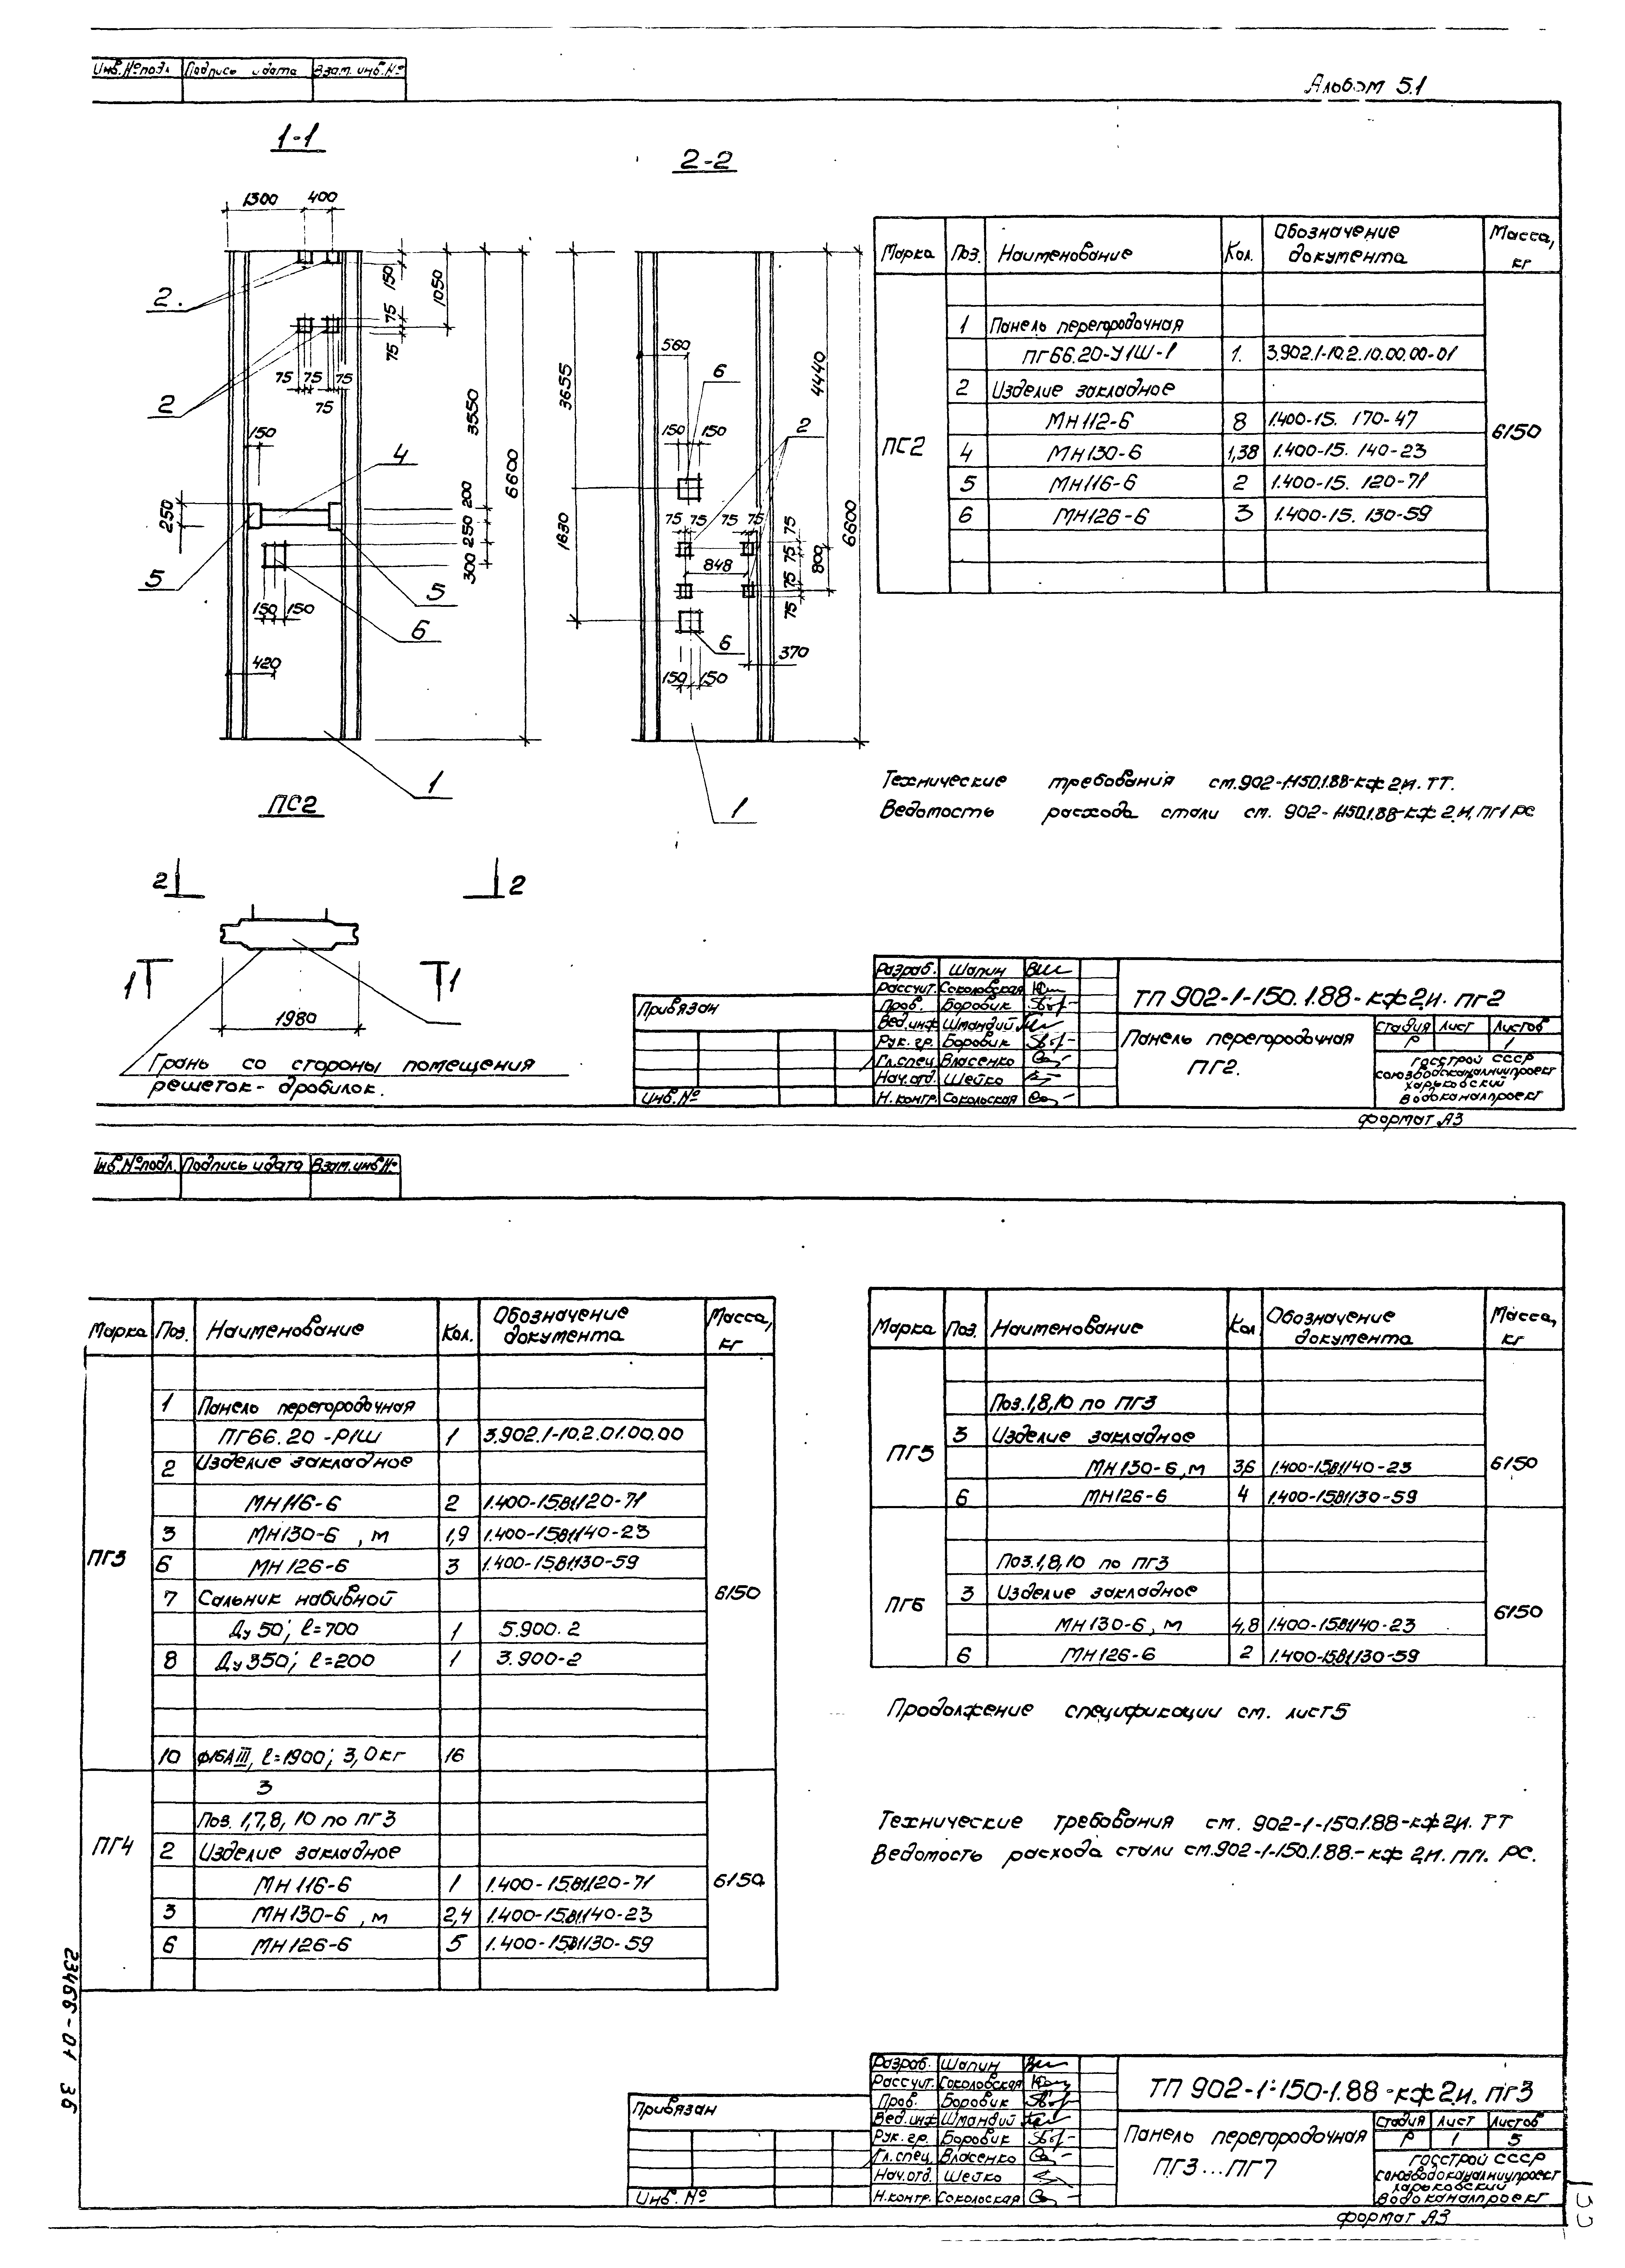 Инв.№подл Подпись и дата Взам. инв.№
Альбом 5.1
1-1
2-2
1300 400
2.
150
1050
75
75
75 75 75
75
2
150
3550
4
200
250
250
6600
300
5
5
150 150
6
420
1
560
6
3655
4440
150 150
2
75 75 75 75
75
1630
75
800
6600
848
75
75
6
370
150 150
1
ПС2
2 2
1 1
1980
Грань со стороны помещения
решеток-дробилок.
Марка Поз. Наименование Кол. Обозначение документа Масса, кг
ПС2 6150
1 Панель перегородочная
ПГ66.20-У1Ш-1 1. 3.902.1-10.2.10.00.00-01
2 Изделие закладное
МН112-6 8 1.400-15. 170-47
4 МН130-6 1,38 1.400-15. 140-23
5 МН116-6 2 1.400-15. 120-71
6 МН126-6 3 1.400-15. 130-59
Технические требования см.902-1-150.1.88-кж2.и.ТТ.
Ведомость расхода стали см. 902-1-150.1.88-кж2.и.ПГ1РС
Привязан
Инв.№
Разраб. Шапин
Рассчит. Соколовская
Пров. Боровик
Вед.инж Шмандий
Рук.гр. Боровик
Гл.спец Власенко
Нач.отд. Шейко
Н.контр. Сокольская
ТП 902-1-150.1.88-кж2.и. ПГ2
Панель перегородочная
ПГ2.
Стадия Лист Листов
Р 1
Госстрой СССР
Союзводоканалниипроект
Харьковский
Водоканалпроект
Формат А3
Инв.№подл. Подпись и дата Взам.инв.№
Марка Поз. Наименование Кол. Обозначение документа Масса, кг
ПГ3 6150
1 Панель перегородочная
ПГ66.20-Р1Ш 1 3.902.1-10.2.01.00.00
2 Изделие закладное
МН116-6 2 1.400-15.В1.120-71
3 МН130-6 , м 1,9 1.400-15.В1.140-23
6 МН126-6 3 1.400-15.В1.130-59
7 Сальник набивной
Ду 50; ℓ=700 1 5.900.2
8 Ду 350; ℓ=200 1 3.900-2
10 ф16АIII, ℓ=1900; 3,0кг 16
3
ПГ4 6150
Поз. 1,7,8, 10 по ПГ3
2 Изделие закладное
МН 116-6 1 1.400-15.В1.120-71
3 МН130-6 , м 2,4 1.400-15.В1.140-23
6 МН126-6 5 1.400-15.В1.130-59
Марка Поз. Наименование Кол Обозначение документа Масса, кг
ПГ5 6150
Поз.1,8,10 по ПГ3
3 Изделие закладное
МН130-6, м 3,6 1.400-15.В1.140-23
6 МН126-6 4 1.400-15.В1.130-59
ПГ6 6150
Поз.1,8,10 по ПГ3
3 Изделие закладное
МН130-6, м 4,8 1.400-15.В1.140-23
6 МН126-6 2 1.400-15.В1.130-59
Продолжение спецификации см. лист5
Технические требования см. 902-1-150.1.88-кж2.и. ТТ
Ведомость расхода стали см.902-1-150.1.88.-кж2.и. ПГ1. РС.
23466-01 36
Привязан
Инв. №
Разраб. Шапин
Рассчит. Соколовская
Пров. Боровик
Вед.инж Шмандий
Рук.гр. Боровик
Гл.спец. Власенко
Нач.отд. Шейко
Н.контр. Сокольская
ТП 902-1-150-1.88-кж2.и. ПГ3
Панель перегородочная
ПГ3...ПГ7
Стадия Лист Листов
Р 1 5
Госстрой СССР
Союзводоканалниипроект
Харьковский
Водоканалпроект
Формат А3